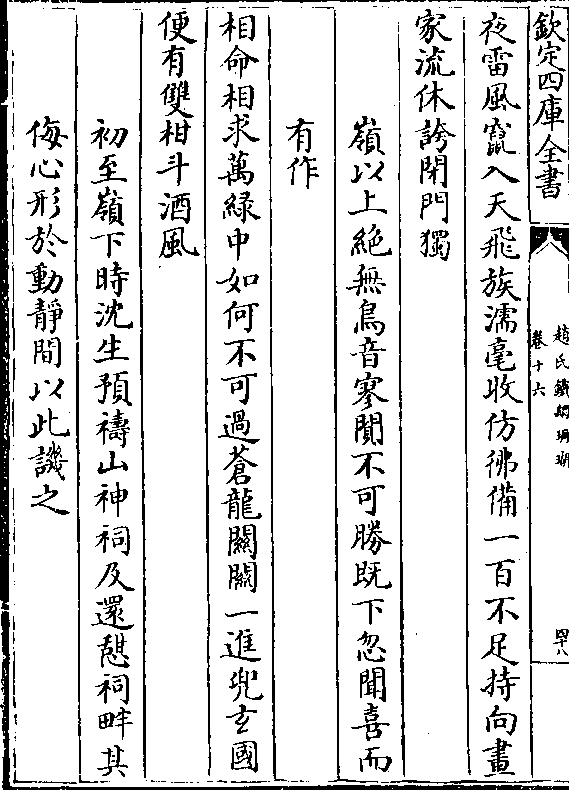 欽定四庫全書
趙氏鐵網珊瑚
卷十六
四十八
夜雷風竄入天飛族濡毫收仿彿備一百不足持向畫
家流休誇閉門獨
嶺以上絶無鳥音寥闃不可勝既下忽聞喜而
有作
相命相求萬緑中如何不可過蒼龍關關一進兜玄國
便有雙柑斗酒風
初至嶺下時沈生預禱山神祠及還憩祠畔其
侮心形於動靜間以此譏之